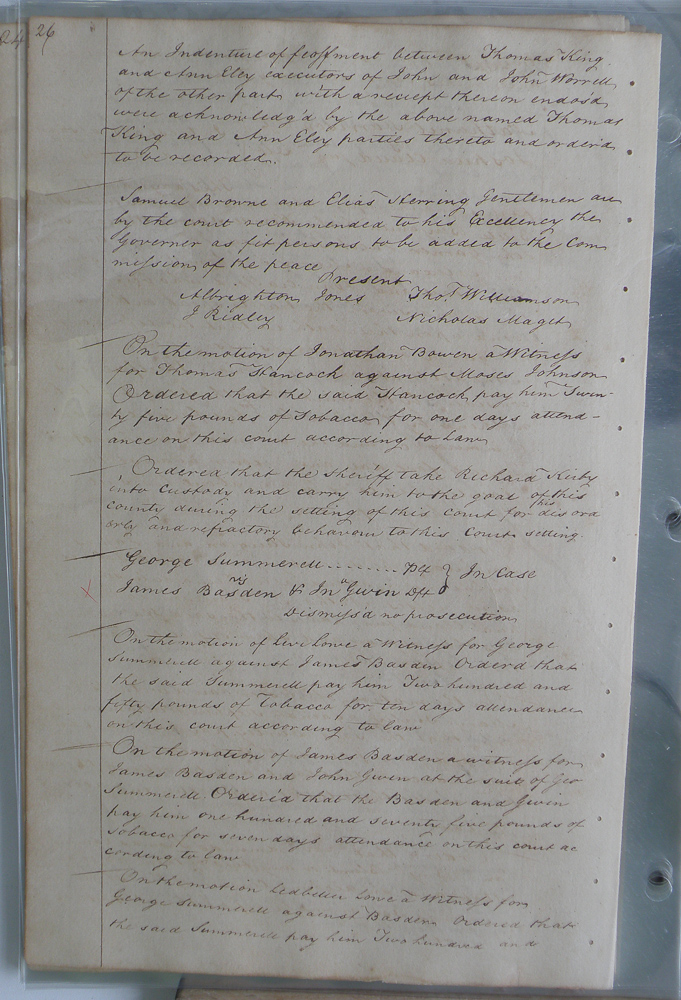 24 26
An Indenture of feoffment between Thomas King
and Ann Eley executors of John and John Worrell
of the other part with a reciept thereon endosd
were acknowledg'd by the above named Thomas
King and Ann Eley parties thereto and orderd
to be recorded.
Samuel Browne and Elias Herring Gentlemen are
by the court recommended to his Excellency the
Governer as fit persons to be added to the Com
mission of the peace
Present
Albrighton Jones Thos. Williamson
J Ridley Nicholas Maget
On the motion of Jonathan Bowen a Witness
for Thomas Hancock against Moses Johnson
Ordered that the said Hancock pay him Twen
ty five pounds of Tobacco for one days attend-
ance on this court according to Law
Ordered that the Sheriff take Richard Kirby
into Custody and carry him to the goal of this
county during the setting of this Court for his disord
erly and refractory behavour to this Court setting.
George Summerell Plt } In Case
James Basden & Jn Gwin Dft
Dismiss'd no prosecution
On the motion of Levi Lowe a Witness for George
Summerell against James Basden Orderd that
the said Summerell pay him Two hundred and
fifty pounds of Tobacco for ten days attendance
on this court according to law
On the motion of James Basden a witness for
James Basden and John Gwin at the suit of Geo
Summerell Ordered that the Basden and Gwin
pay him one hundred and seventy five pounds of
Tobacco for seven days attendance on this court ac
cording to law
On the motion Ledbetter Lowe a Witness for
George Summerell against Basden Ordered that
the said Summerell pay him Two hundred and